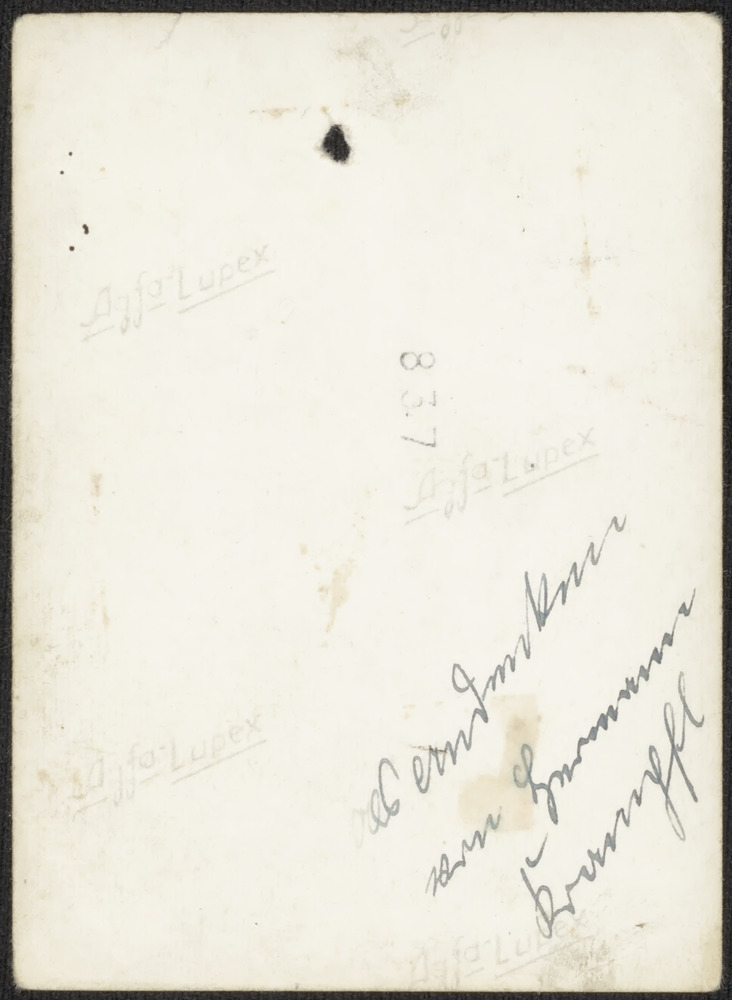 Agfa-Lupex
837
Agfa-Lupex
als Andenken
von Hermann
Agfa-Lupex
Agfa-Lupex